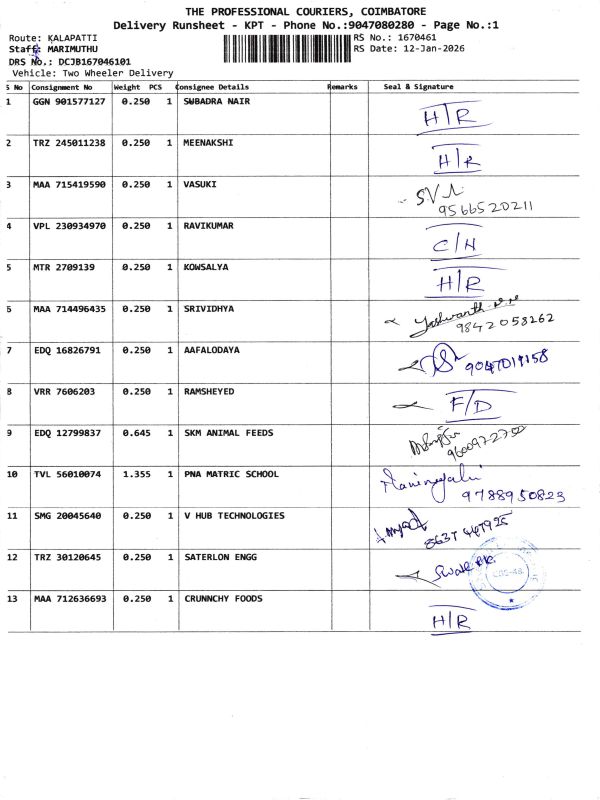 THE PROFESSIONAL COURIERS, COIMBATORE
Delivery Runsheet - KPT - Phone No.:9047080280 - Page No.:1
Route: KALAPATTI RS No.: 1670461
Staff: MARIMUTHU RS Date: 12-Jan-2026
DRS No.: DCJB167046101
Vehicle: Two Wheeler Delivery
S No Consignment No Weight PCS Consignee Details Remarks Seal & Signature
1 GGN 901577127 0.250 1 SUBADRA NAIR H/R
2 TRZ 245011238 0.250 1 MEENAKSHI H/R
3 MAA 715419590 0.250 1 VASUKI
9566520211
4 VPL 230934970 0.250 1 RAVIKUMAR C/H
5 MTR 2709139 0.250 1 KOWSALYA H/R
6 MAA 714496435 0.250 1 SRIVIDHYA Yashwanth
9842058262
7 EDQ 16826791 0.250 1 AAFALODAYA
8 VRR 7606203 0.250 1 RAMSHEYED F/D
9 EDQ 12799837 0.645 1 SKM ANIMAL FEEDS
10 TVL 56010074 1.355 1 PNA MATRIC SCHOOL
9788950823
11 SMG 20045640 0.250 1 V HUB TECHNOLOGIES
12 TRZ 30120645 0.250 1 SATERLON ENGG
13 MAA 712636693 0.250 1 CRUNNCHY FOODS H/R